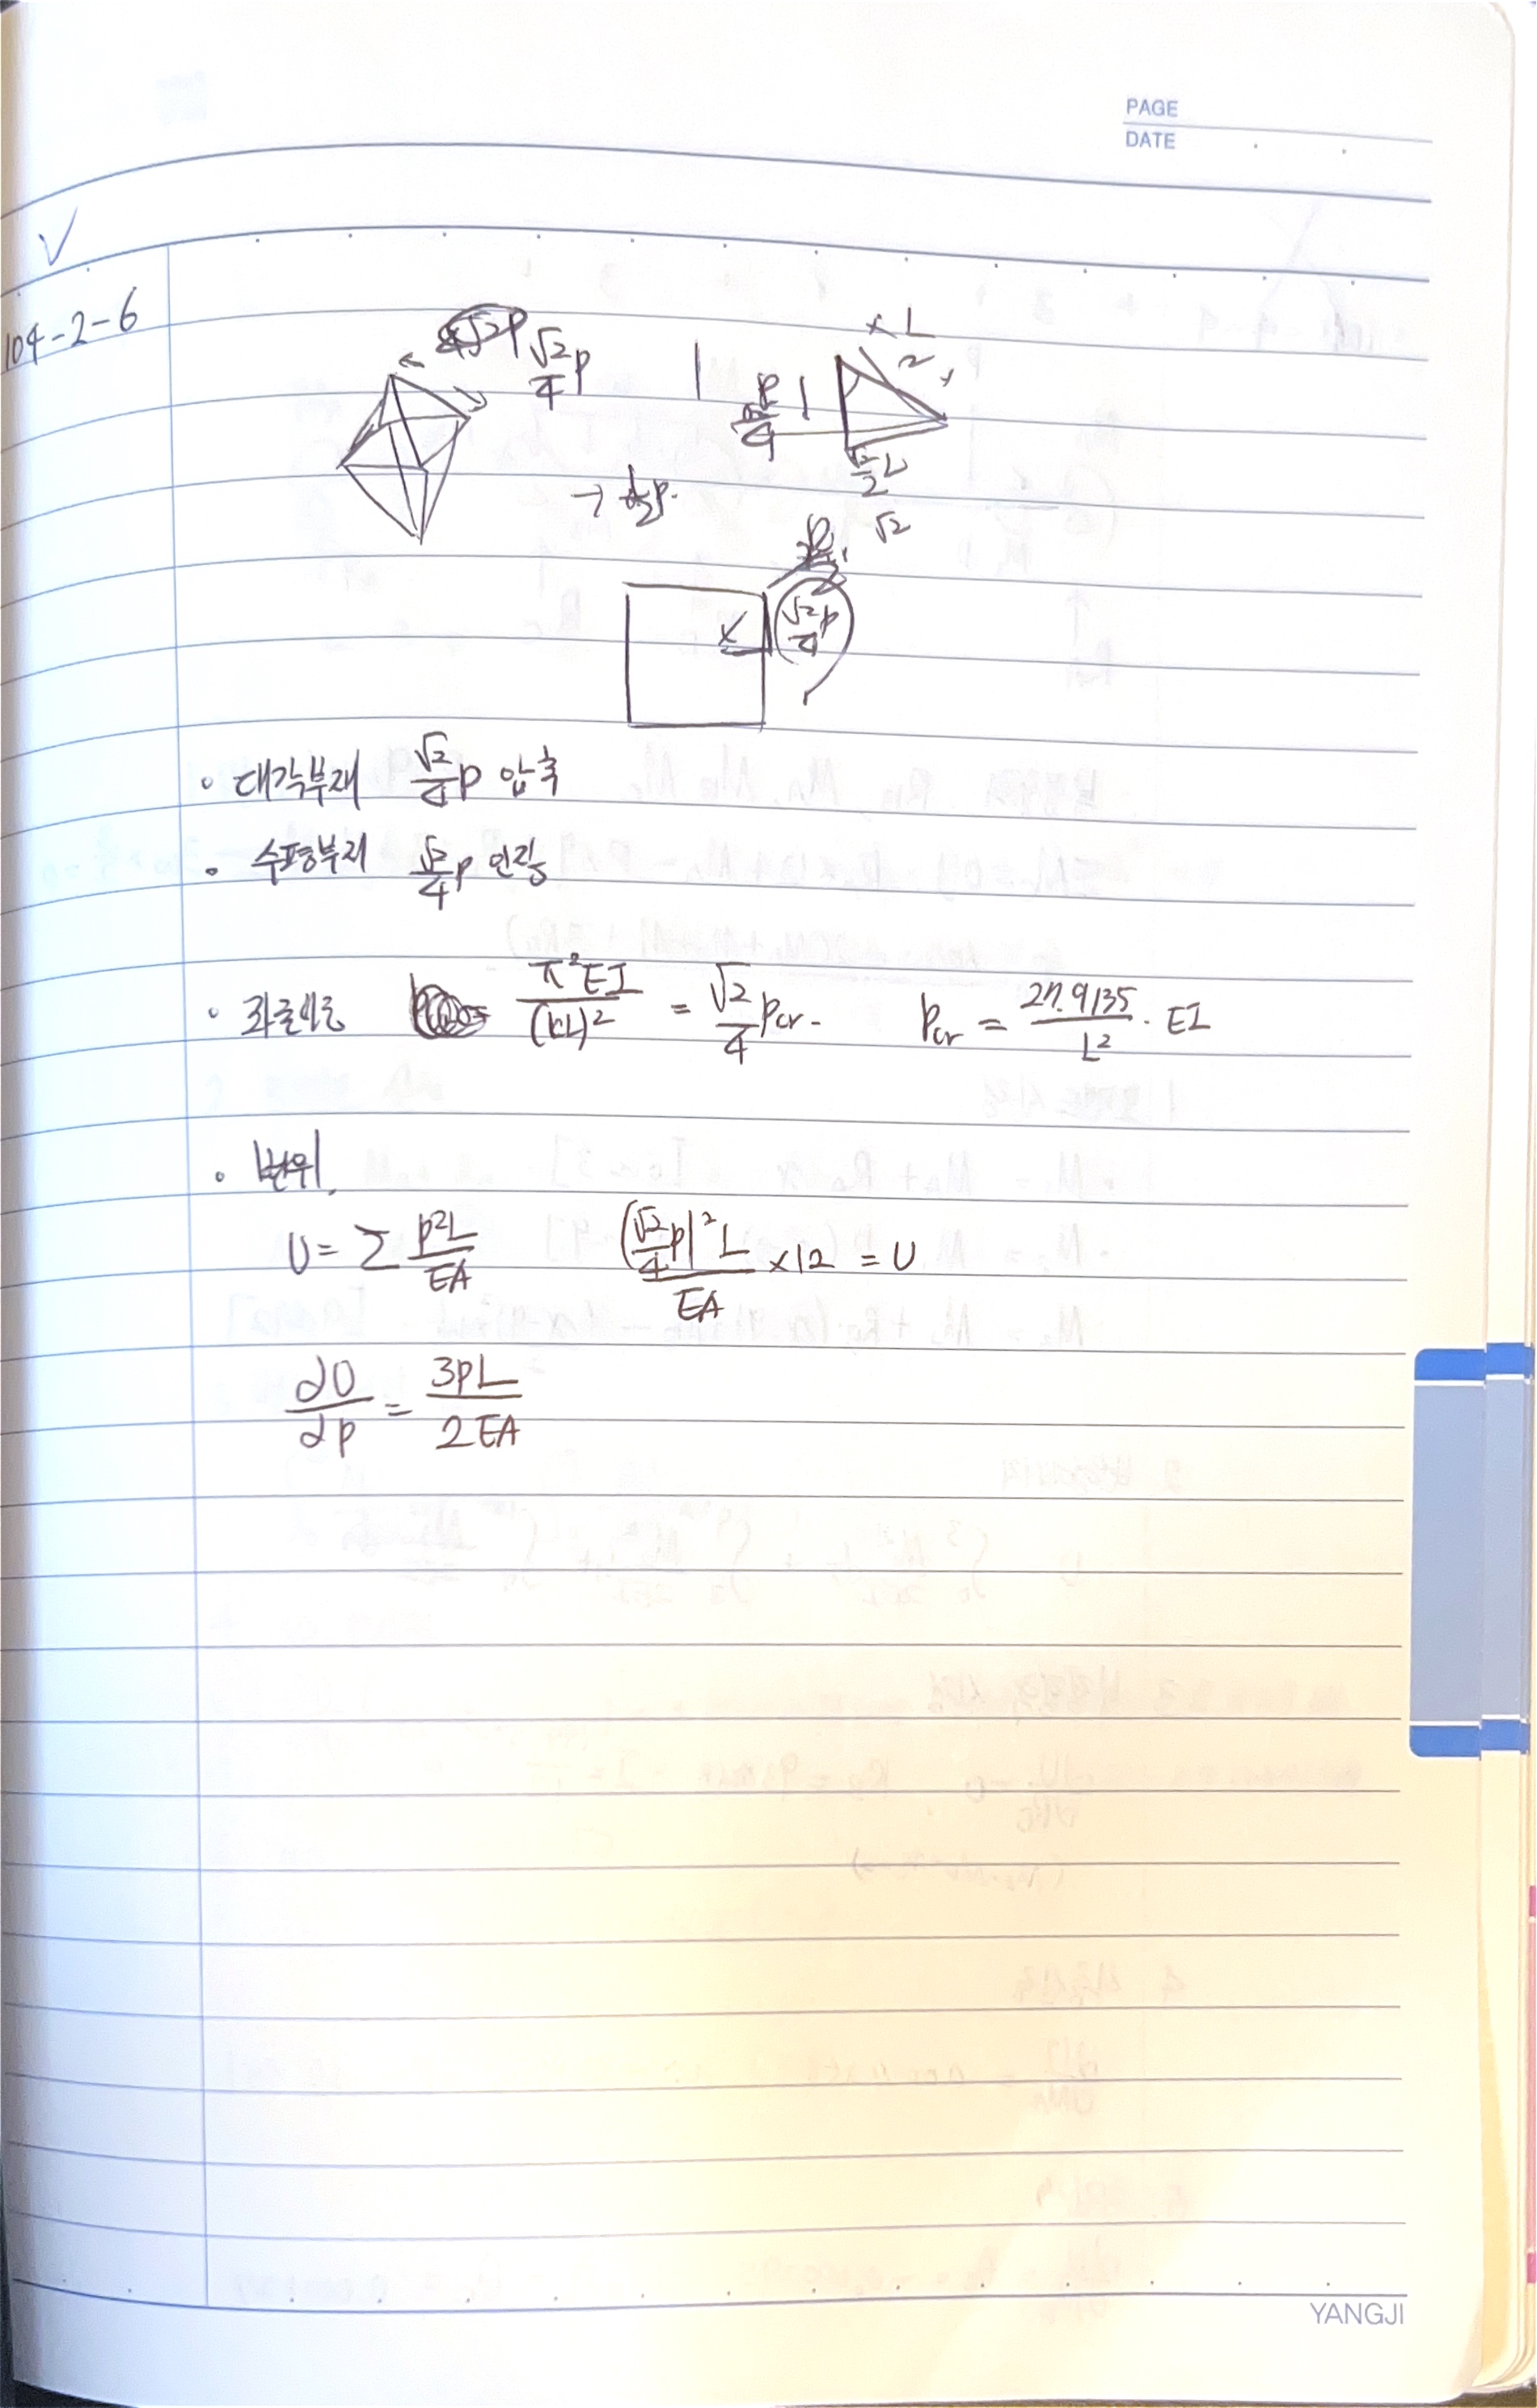 PAGE
DATE
104-2-6
√2/4 P
L/2
P/4
√2/2 L
→ 1/2 P.
√2
√2/4 P
• 대각부재 √2/4 P 압축
• 수평부재 √2/4 P 인장
• 좌굴하중 π²EI/(KL)² = √2/4 Pcr. Pcr = 27.9135/L² · EI
• 변위.
U = Σ P²L/EA (√2/4 P)² L/EA ×12 = U
∂U/∂P = 3PL/2EA
YANGJI